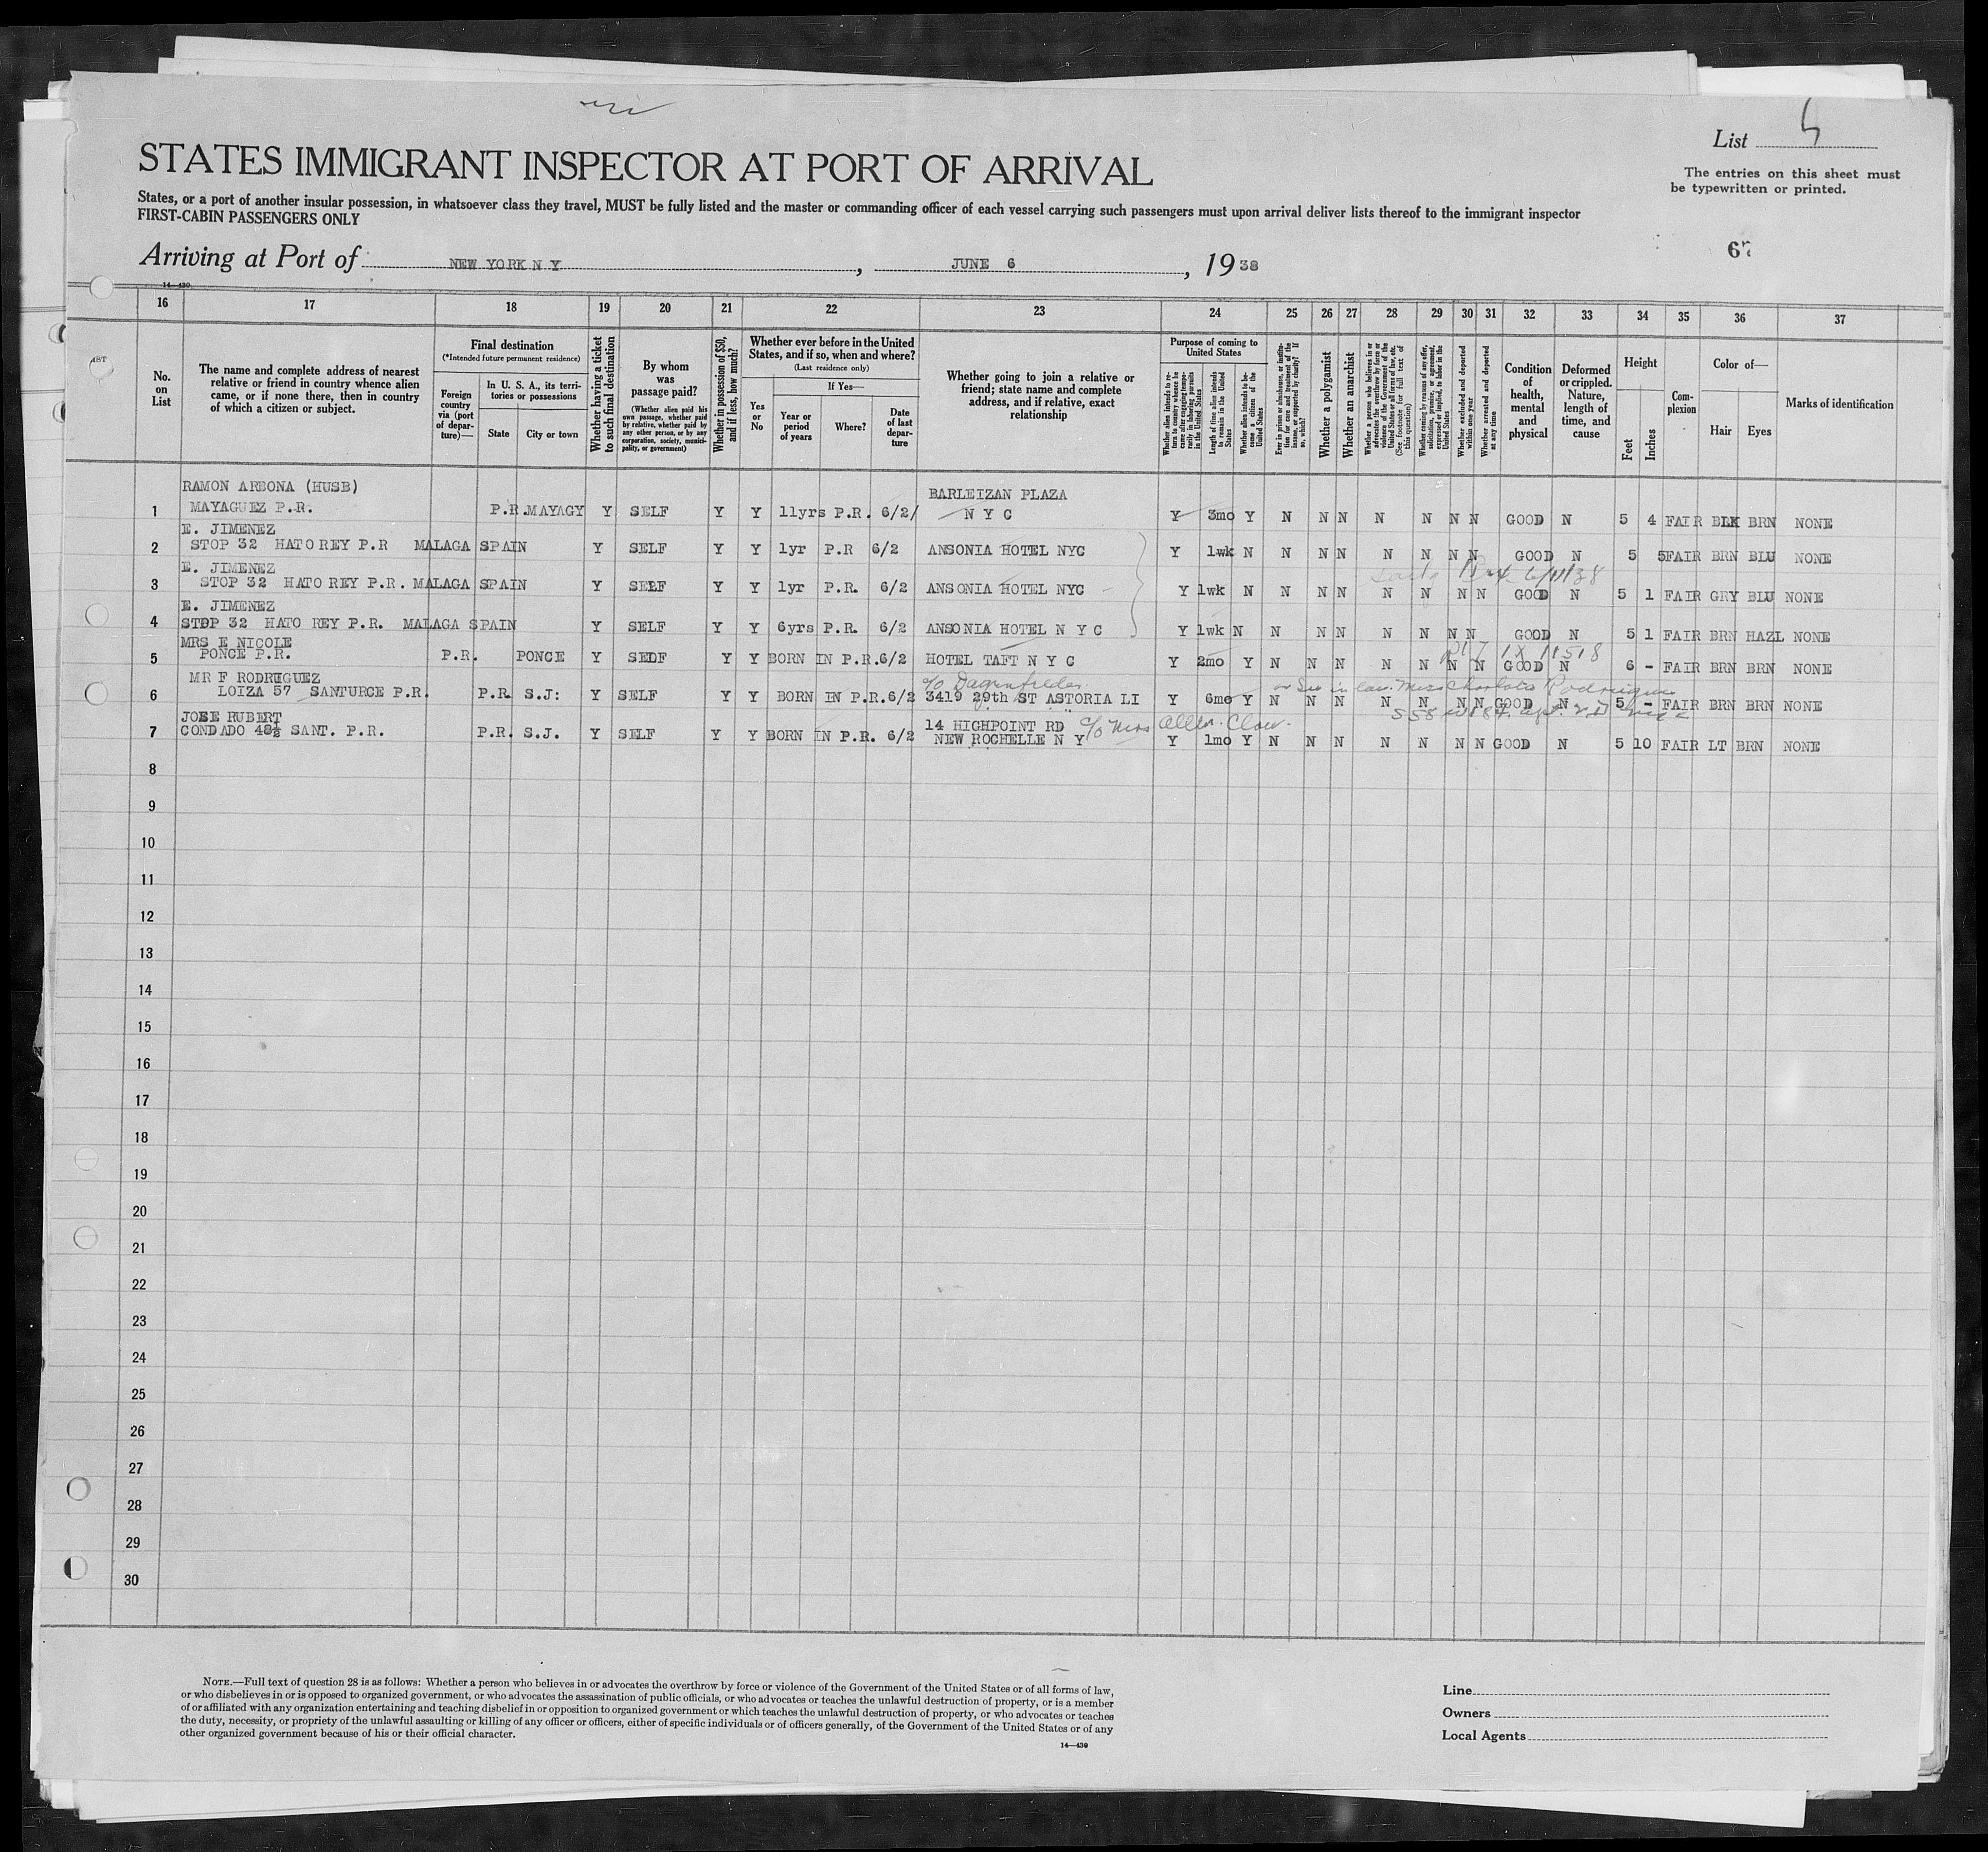 List
STATES IMMIGRANT INSPECTOR AT PORT OF ARRIVAL
The entries on this sheet must
be typewritten or printed.
States, or a port of another insular possession, in whatsoever class they travel, MUST be fully listed and the master or commanding officer of each vessel carrying such passengers must upon arrival deliver lists thereof to the immigrant inspector
FIRST-CABIN PASSENGERS ONLY
Arriving at Port of NEW YORK N Y, JUNE 6, 1938
14—430
16 17 18 19 20 21 22 23 24 25 26 27 28 29 30 31 32 33 34 35 36 37
No. on List
The name and complete address of nearest
relative or friend in country whence alien
came, or if none there, then in country
of which a citizen or subject.
Final destination
(*Intended future permanent residence)
Foreign country via (port of departure)—
In U. S. A., its territories or possessions
State
City or town
Whether having a ticket to such final destination
By whom was passage paid?
(Whether alien paid his own passage, whether paid by relative, whether paid by any other person, or by any corporation, society, municipality, or government)
Whether in possession of $50, and if less, how much?
Whether ever before in the United States, and if so, when and where?
(Last residence only)
Yes or No
If Yes—
Year or period of years
Where?
Date of last departure
Whether going to join a relative or
friend; state name and complete
address, and if relative, exact
relationship
Purpose of coming to United States
Whether alien intends to return to country whence he came after engaging temporarily in laboring pursuits in the United States
Length of time alien intends to remain in the United States
Whether alien intends to become a citizen of the United States
Ever in prison or almshouse, or institution for care and treatment of the insane, or supported by charity? If so, which?
Whether a polygamist
Whether an anarchist
Whether a person who believes in or advocates the overthrow by force or violence of the Government of the United States or all forms of law, etc. (See footnote for full text of this question)
Whether coming by reasons of any offer, solicitation, promise, or agreement, expressed or implied, to labor in the United States
Whether excluded and deported within one year
Whether arrested and deported at any time
Condition of health, mental and physical
Deformed or crippled. Nature, length of time, and cause
Height
Feet
Inches
Complexion
Color of—
Hair
Eyes
Marks of identification
RAMON ARBONA (HUSB) BARLEIZAN PLAZA
1 MAYAGUEZ P.R. P.R. MAYAGY Y SELF Y Y 11yrs P.R. 6/2/ N Y C Y 3mo Y N N N N N N N GOOD N 5 4 FAIR BLK BRN NONE
E. JIMENEZ
2 STOP 32 HATO REY P.R MALAGA SPAIN Y SELF Y Y 1yr P.R 6/2 ANSONIA HOTEL NYC Y 1wk N N N N N N N N GOOD N 5 5 FAIR BRN BLU NONE
E. JIMENEZ
3 STOP 32 HATO REY P.R. MALAGA SPAIN Y SELF Y Y 1yr P.R. 6/2 ANSONIA HOTEL NYC Y 1wk N N N N N N N N GOOD N 5 1 FAIR GRY BLU NONE
E. JIMENEZ
4 STOP 32 HATO REY P.R. MALAGA SPAIN Y SELF Y Y 6yrs P.R. 6/2 ANSONIA HOTEL N Y C Y 1wk N N N N N N N N GOOD N 5 1 FAIR BRN HAZL NONE
MRS E NICOLE
5 PONCE P.R. P.R. PONCE Y SELF Y Y BORN IN P.R. 6/2 HOTEL TAFT N Y C Y 2mo Y N N N N N N N GOOD N 6 - FAIR BRN BRN NONE
MR F RODRIGUEZ
6 LOIZA 57 SANTURCE P.R. P.R. S.J: Y SELF Y Y BORN IN P.R. 6/2 3419 29th ST ASTORIA LI Y 6mo Y N N N N N N N GOOD N 5 - FAIR BRN BRN NONE
JOSE RUBERT 14 HIGHPOINT RD
7 CONDADO 45½ SANT. P.R. P.R. S.J. Y SELF Y Y BORN IN P.R. 6/2 NEW ROCHELLE N Y Y 1mo Y N N N N N N N GOOD N 5 10 FAIR LT BRN NONE
8
9
10
11
12
13
14
15
16
17
18
19
20
21
22
23
24
25
26
27
28
29
30
NOTE.—Full text of question 28 is as follows: Whether a person who believes in or advocates the overthrow by force or violence of the Government of the United States or of all forms of law,
or who disbelieves in or is opposed to organized government, or who advocates the assassination of public officials, or who advocates or teaches the unlawful destruction of property, or is a member
of or affiliated with any organization entertaining and teaching disbelief in or opposition to organized government or which teaches the unlawful destruction of property, or who advocates or teaches
the duty, necessity, or propriety of the unlawful assaulting or killing of any officer or officers, either of specific individuals or of officers generally, of the Government of the United States or of any
other organized government because of his or their official character.
14—430
Line
Owners
Local Agents